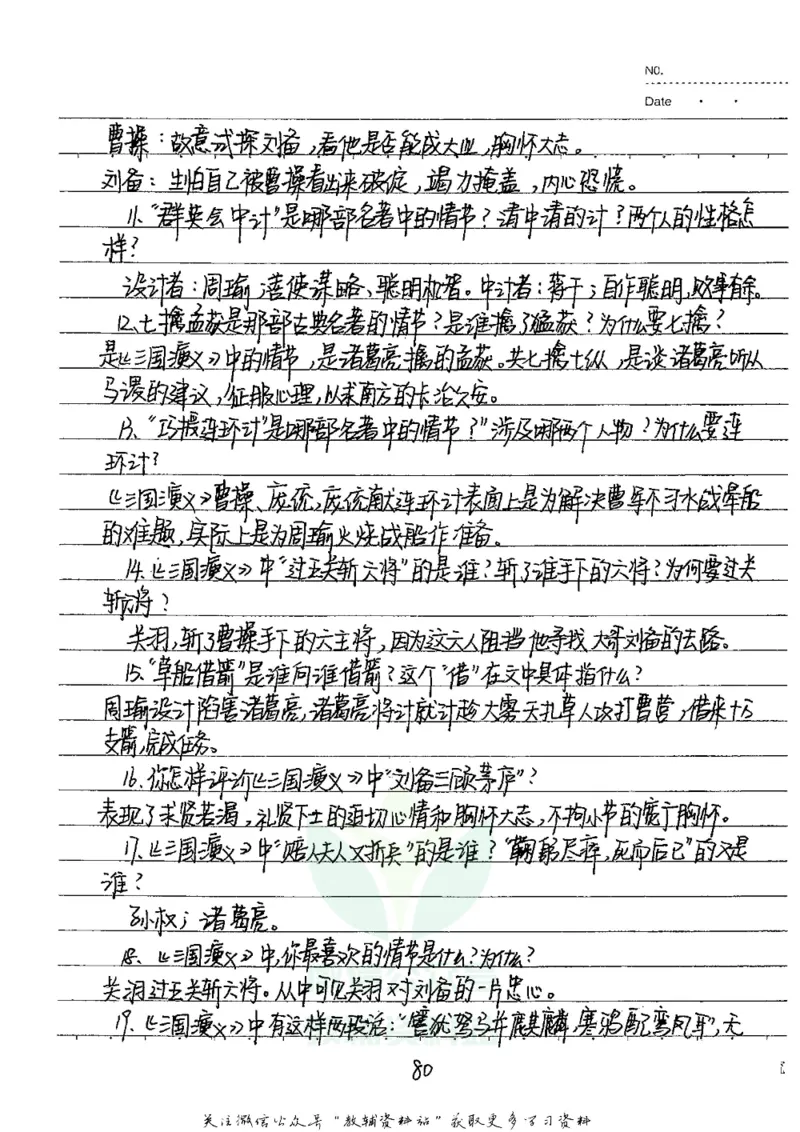 NO.
Date
曹操：故意试探刘备，看他是否能成大业，胸怀大志。
刘备：生怕自己被曹操看出来破绽，竭力掩盖，内心恐慌。
11、“群英会中计”是哪部名著中的情节？请中请的计？两个人的性格怎
样？
设计者：周瑜；善使谋略、聪明机智。中计者：蒋干；自作聪明，败事有余。
12、七擒孟获是那部古典名著的情节？是谁擒了孟获？为什么要七擒？
是《三国演义》中的情节，是诸葛亮擒的孟获。共七擒七纵，是谈诸葛亮听从
马谡的建议，征服心理，以求南方的长治久安。
13、“巧授连环计”是哪部名著中的情节？”涉及哪两个人物？为什么要连
环计？
《三国演义》曹操、庞统，庞统献连环计表面上是为解决曹军不习水战晕船
的难题，实际上是为周瑜火烧战船作准备。
14.《三国演义》中“过五关斩六将”的是谁？斩了谁手下的六将？为何要过关
斩六将？
关羽，斩了曹操手下的六主将，因为这六人阻挡他寻找大哥刘备的去路。
15.“草船借箭”是谁向谁借箭？这个“借”在文中具体指什么？
周瑜设计陷害诸葛亮，诸葛亮将计就计趁大雾天扎草人攻打曹营，借来十万
支箭，完成任务。
16、你怎样评价《三国演义》中“刘备三顾茅庐”？
表现了求贤若渴，礼贤下士的迫切心情和胸怀大志，不拘小节的宽广胸怀。
17、《三国演义》中“赔了夫人又折兵”的是谁？“鞠躬尽瘁，死而后已”的又是
谁？
孙权；诸葛亮。
18、《三国演义》中，你最喜欢的情节是什么？为什么？
关羽过五关斩六将。从中可见关羽对刘备的一片忠心。
19、《三国演义》中有这样两段话：“譬犹驽马并麒麟，寒鸦配鸾凤耳”，无
80
关注微信公众号“教辅资料站”获取更多学习资料